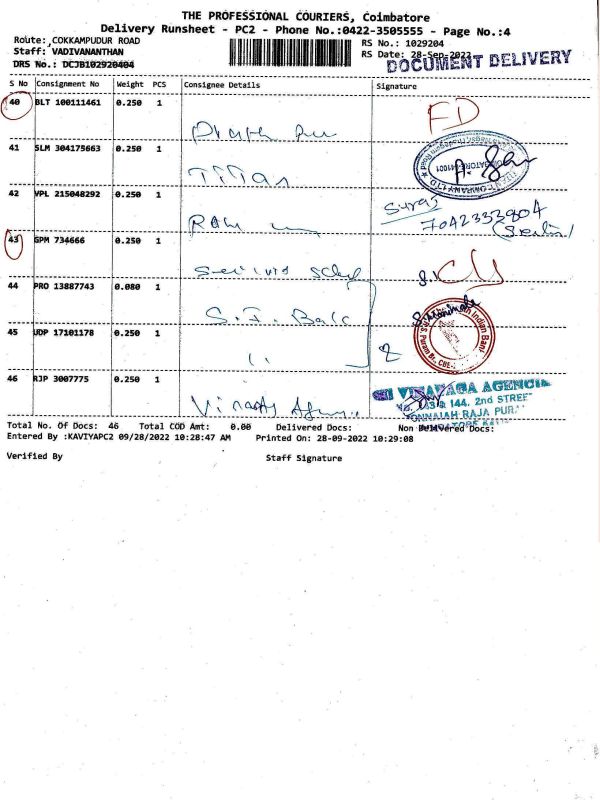 THE PROFESSIONAL COURIERS, Coimbatore
Delivery Runsheet - PC2 - Phone No.:0422-3505555 - Page No.:4
Route: COKKAMPUDUR ROAD
RS No.: 1029204
Staff: VADIVANANTHAN
RS Date: 28-Sep-2022
DRS No.: DCJB102920404
DOCUMENT DELIVERY
S No Consignment No Weight PCS Consignee Details Signature
40 BLT 100111461 0.250 1
FD
41 SLM 304175663 0.250 1
Titan
42 VPL 215048292 0.250 1
Suraj
7042333804
43 GPM 734666 0.250 1
44 PRO 13887743 0.080 1
45 UDP 17101178 0.250 1
Indian Bank
46 RJP 3007775 0.250 1
SRI VINAYAGA AGENCIE
144, 2nd STREET
PONNAIAH RAJA PURAM
Total No. Of Docs: 46 Total COD Amt: 0.00 Delivered Docs: Non Delivered Docs:
Entered By :KAVIYAPC2 09/28/2022 10:28:47 AM Printed On: 28-09-2022 10:29:08
Verified By Staff Signature